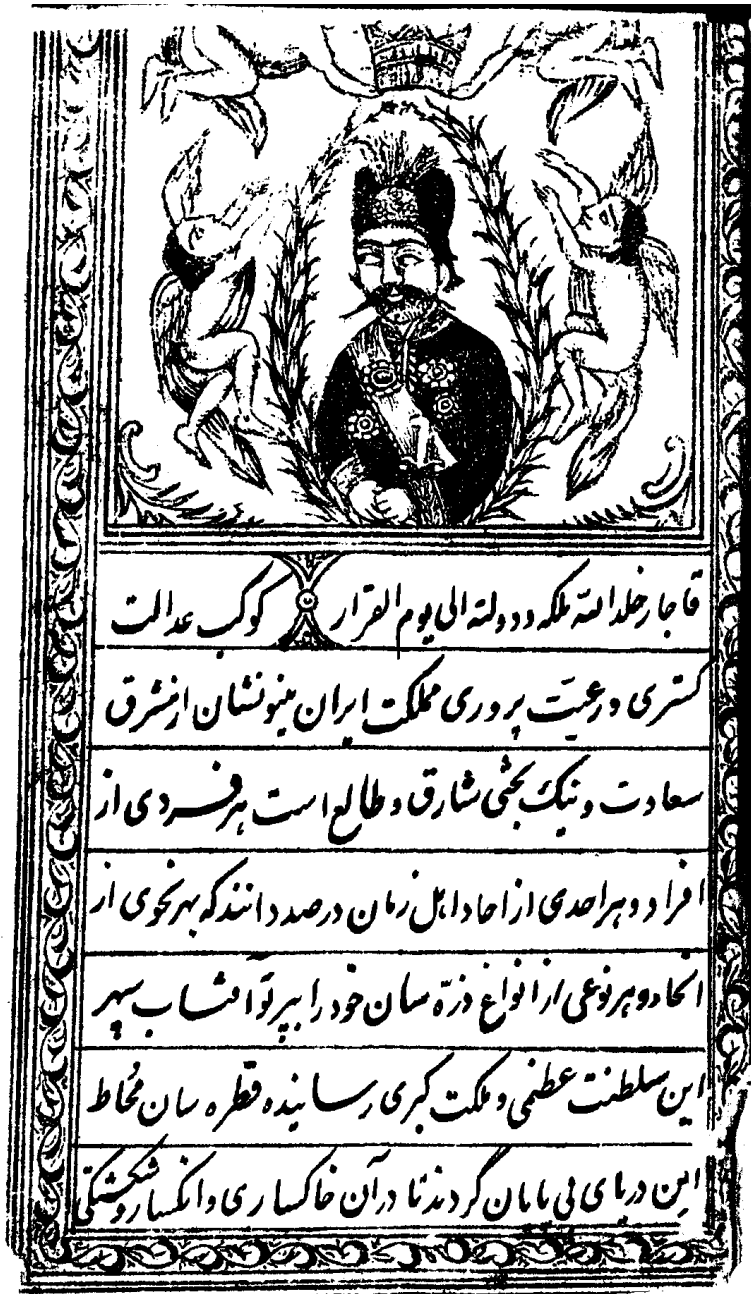 قاجار خلد الله ملکه و دولته الی یوم القرار کوکب عدالت
گستری و رعیّت پروری مملکت ایران مینو نشان از مشرق
سعادت و نیک بختی شارق و طالع است هر فردی از
افراد و هر احدی از احاد اهل زمان در صدد انند که بهر نحوی از
انحاء و هر نوعی از انواع ذرّه سان خود را بپرتو آفتاب سپهر
این سلطنت عظمی و ملکت کبری رسانیده قطره سان مُحاط
این دریای بی پایان گردند تا در آن خاکساری و انکسار و شکستگی